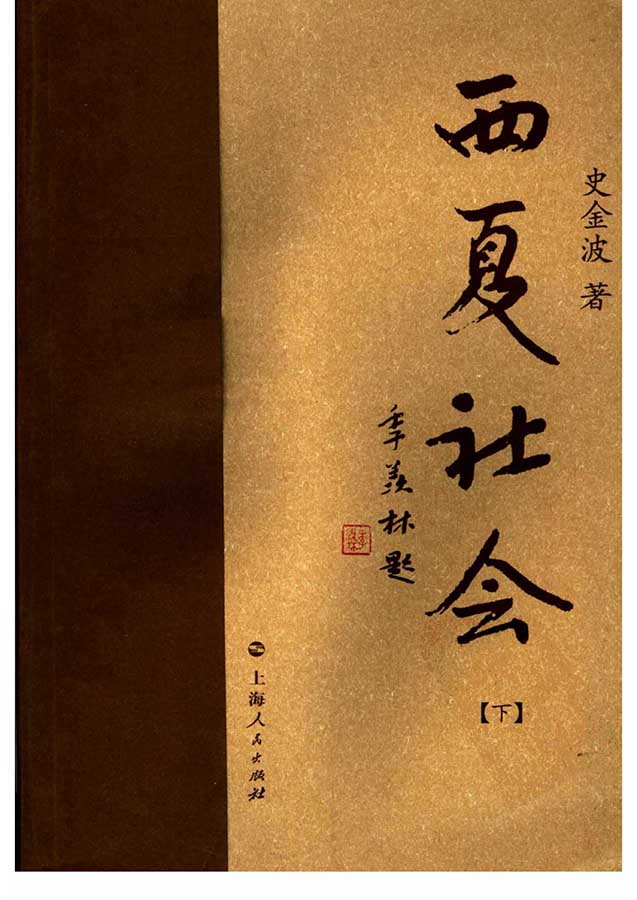 史金波 著
西夏社会
【下】
季羡林题
上海人民出版社